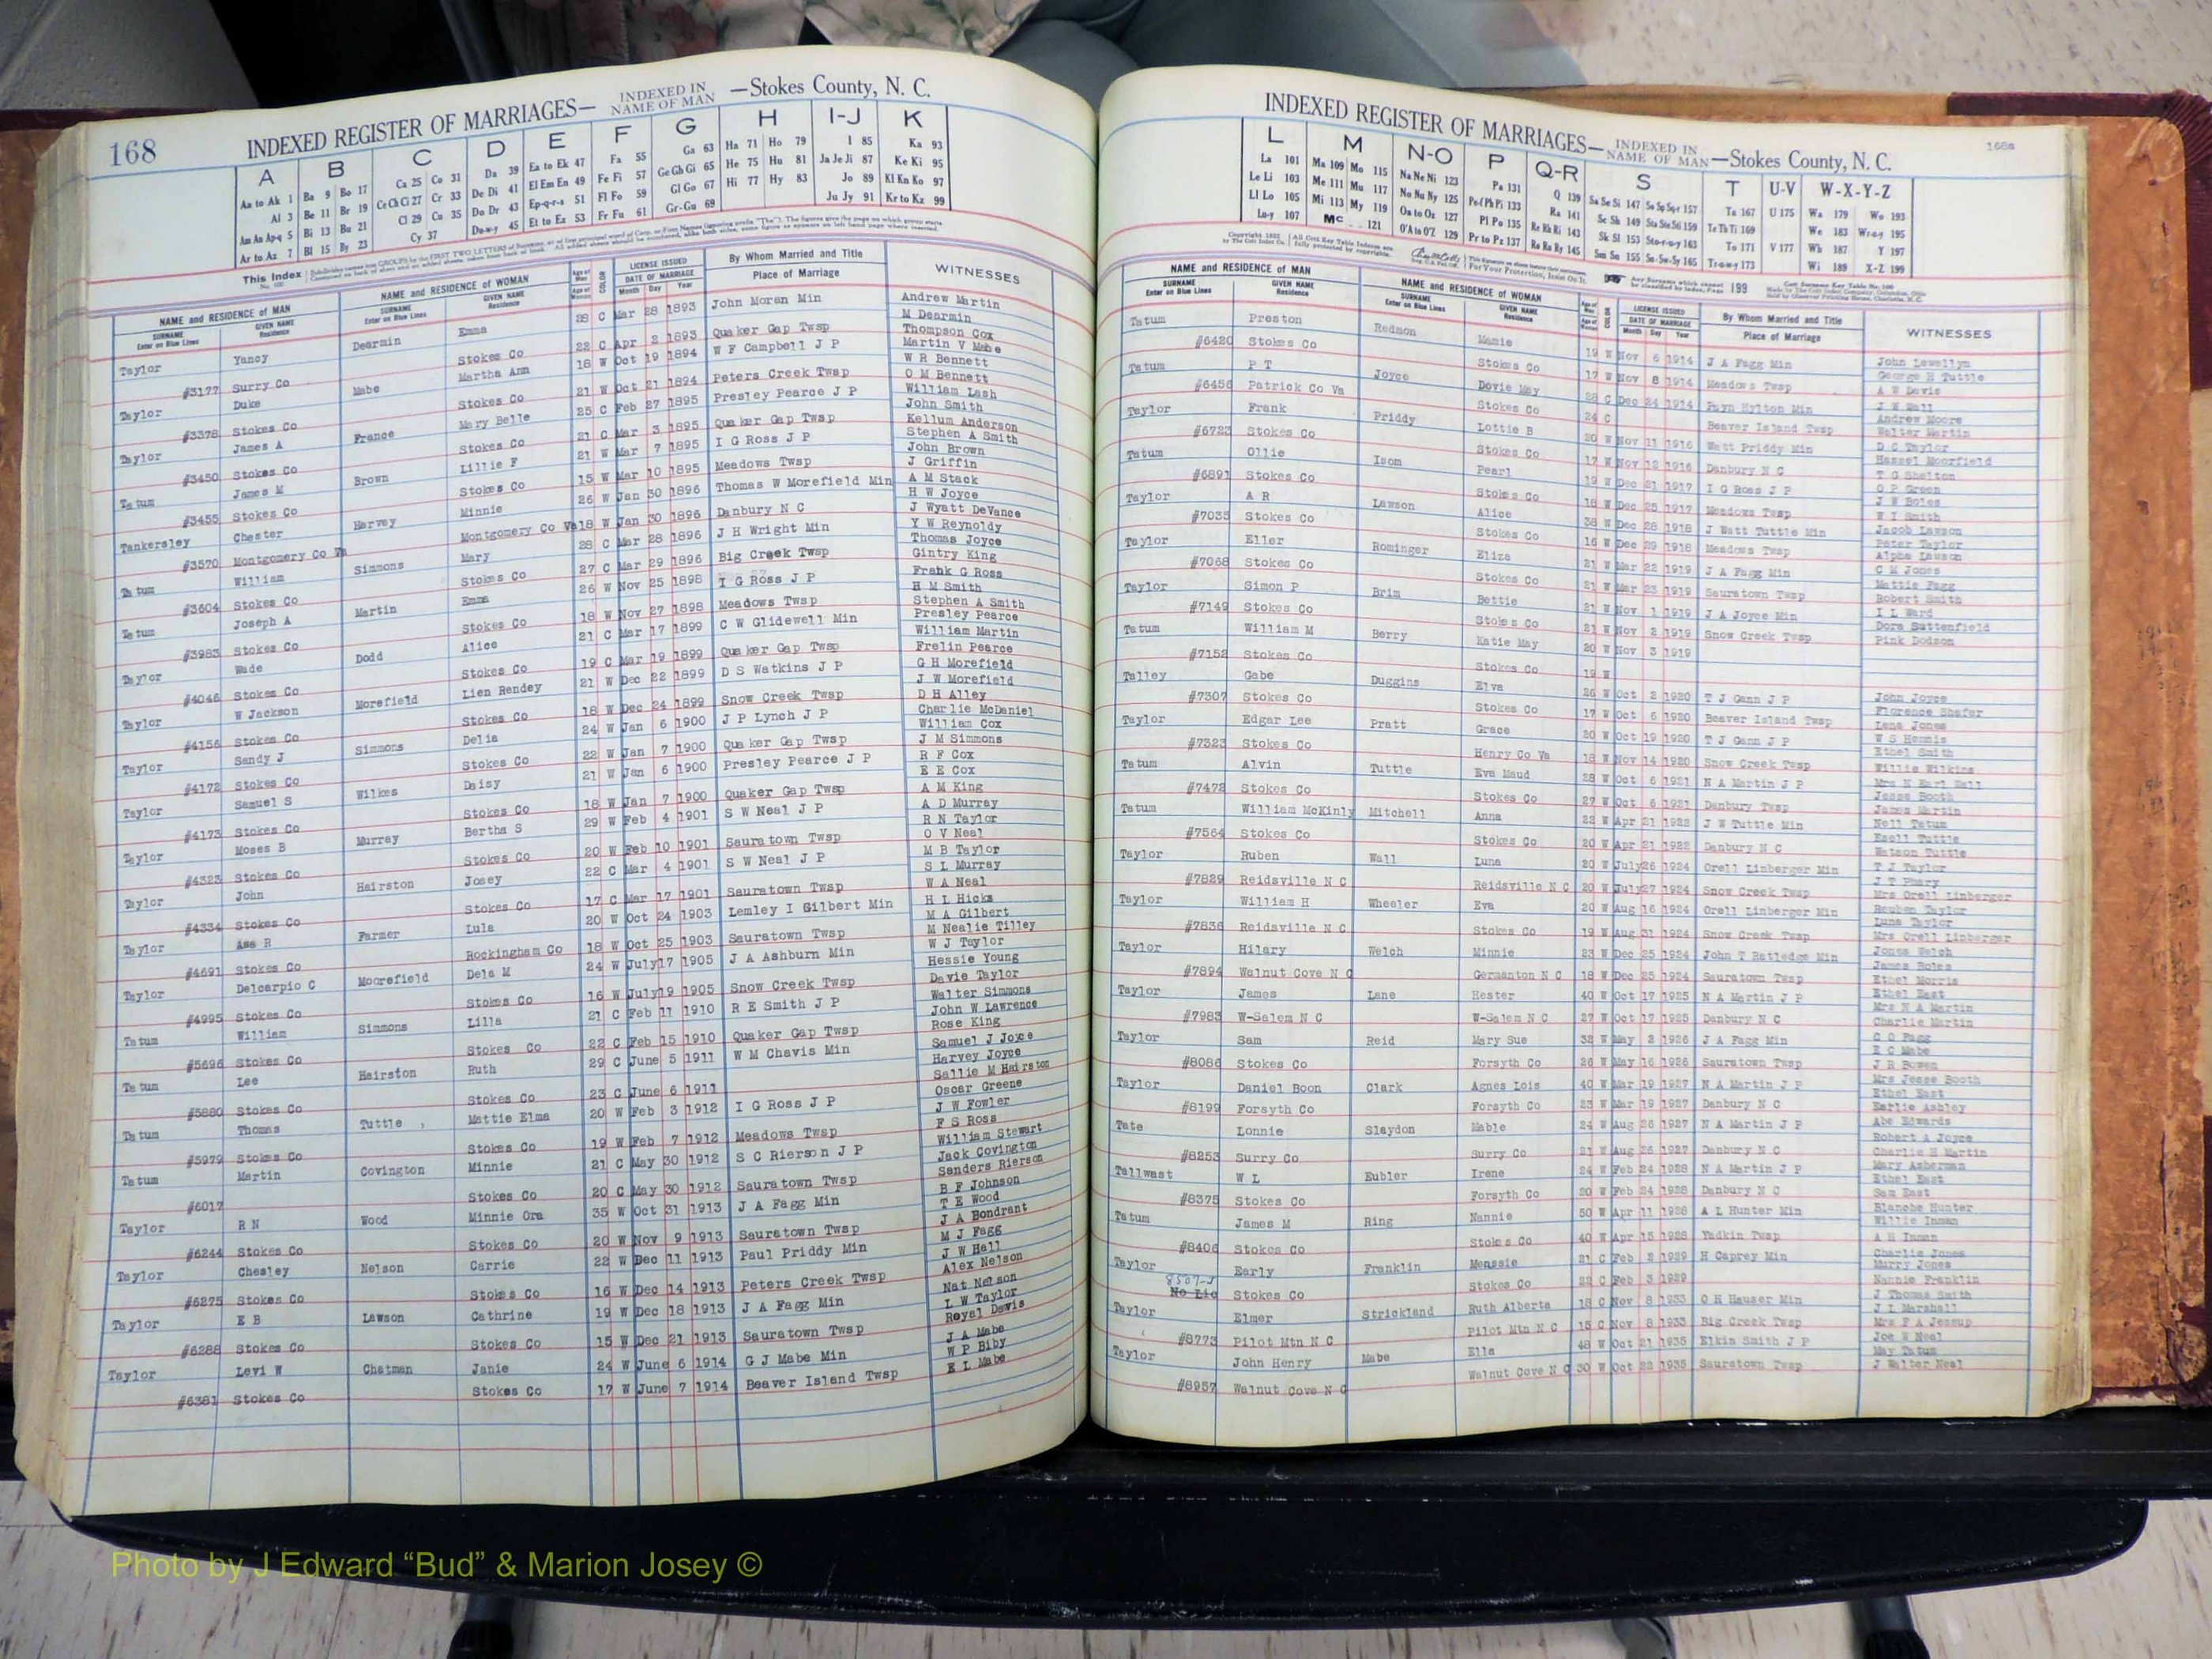 168
INDEXED REGISTER OF MARRIAGES— INDEXED IN NAME OF MAN —Stokes County, N. C.
A B C D E F G H I-J K
Aa to Ak 1 Ba 9 Bo 17 Ca 25 Co 31 Da 39 Ea to Ek 47 Fa 55 Ga 63 Ha 71 Ho 79 I 85 Ka 93
Al 3 Be 11 Br 19 Ce Ch Ci 27 Cr 33 De Di 41 El Em En 49 Fe Fi 57 Ge Gh Gi 65 He 75 Hu 81 Ja Je Ji 87 Ke Ki 95
Am An Ap-q 5 Bi 13 Bu 21 Cl 29 Cu 35 Do Dr 43 Ep-q-r-s 51 Fl Fo 59 Gl Go 67 Hi 77 Hy 83 Jo 89 Kl Kn Ko 97
Ar to Az 7 Bl 15 By 23 Cy 37 Du-w-y 45 Et to Ez 53 Fr Fu 61 Gr-Gu 69 Ju Jy 91 Kr to Kz 99
NAME and RESIDENCE OF MAN NAME and RESIDENCE OF WOMAN LICENSE ISSUED By Whom Married and Title WITNESSES
SURNAME Enter on Blue Lines GIVEN NAME Residence SURNAME Enter on Blue Lines GIVEN NAME Residence COLOR DATE OF MARRIAGE Month Day Year Place of Marriage
Taylor Yancy Dearmin Emma 28 C Mar 28 1893 John Moran Min Andrew Martin
M Dearmin
#3177 Surry Co Stokes Co 22 C Apr 2 1893 Quaker Gap Twsp Thompson Cox
Taylor Duke Mabe Martha Ann 18 W Oct 19 1894 W F Campbell J P Martin V Mabe
W R Bennett
#3378 Stokes Co Stokes Co 21 W Oct 21 1894 Peters Creek Twsp O M Bennett
Taylor James A France Mary Belle 25 C Feb 27 1895 Presley Pearce J P William Lash
John Smith
#3450 Stokes Co Stokes Co 21 C Mar 3 1895 Quaker Gap Twsp Kellum Anderson
Tatum James M Brown Lillie F 21 W Mar 7 1895 I G Ross J P Stephen A Smith
John Brown
#3455 Stokes Co Stokes Co 15 W Mar 10 1895 Meadows Twsp J Griffin
Tankersley Chester Harvey Minnie 26 W Jan 30 1896 Thomas W Morefield Min A M Stack
H W Joyce
#3570 Montgomery Co Va Montgomery Co Va 18 W Jan 30 1896 Danbury N C J Wyatt DeVance
Tatum William Simmons Mary 28 C Mar 28 1896 J H Wright Min Y W Reynoldy
Thomas Joyce
#3604 Stokes Co Stokes Co 27 C Mar 29 1896 Big Creek Twsp Gintry King
Tatum Joseph A Martin Emma 26 W Nov 25 1898 I G Ross J P Frank G Ross
H M Smith
#3983 Stokes Co Stokes Co 18 W Nov 27 1898 Meadows Twsp Stephen A Smith
Taylor Wade Dodd Alice 21 C Mar 17 1899 C W Glidewell Min Presley Pearce
William Martin
#4046 Stokes Co Stokes Co 19 C Mar 19 1899 Quaker Gap Twsp Frelin Pearce
Taylor W Jackson Morefield Lien Rendey 21 W Dec 22 1899 D S Watkins J P G H Morefield
J W Morefield
#4156 Stokes Co Stokes Co 18 W Dec 24 1899 Snow Creek Twsp D H Alley
Taylor Sandy J Simmons Delia 24 W Jan 6 1900 J P Lynch J P Charlie McDaniel
William Cox
#4172 Stokes Co Stokes Co 22 W Jan 7 1900 Quaker Gap Twsp J M Simmons
Taylor Samuel S Wilkes Daisy 21 W Jan 6 1900 Presley Pearce J P R F Cox
E E Cox
#4173 Stokes Co Stokes Co 18 W Jan 7 1900 Quaker Gap Twsp A M King
Taylor Moses B Murray Bertha S 29 W Feb 4 1901 S W Neal J P A D Murray
R N Taylor
#4323 Stokes Co Stokes Co 20 W Feb 10 1901 Sauratown Twsp O V Neal
Taylor John Hairston Josey 22 C Mar 4 1901 S W Neal J P M B Taylor
S L Murray
#4334 Stokes Co Stokes Co 17 C Mar 17 1901 Sauratown Twsp W A Neal
Taylor Asa R Farmer Lula 20 W Oct 24 1903 Lemley I Gilbert Min H L Hicks
M A Gilbert
#4691 Stokes Co Rockingham Co 18 W Oct 25 1903 Sauratown Twsp M Nealie Tilley
Taylor Delcarpio C Moorefield Dela M 24 W July 17 1905 J A Ashburn Min W J Taylor
Hessie Young
#4995 Stokes Co Stokes Co 16 W July 19 1905 Snow Creek Twsp Davie Taylor
Tatum William Simmons Lilla 21 C Feb 11 1910 R E Smith J P Walter Simmons
John W Lawrence
#5696 Stokes Co Stokes Co 22 C Feb 15 1910 Quaker Gap Twsp Rose King
Tatum Lee Hairston Ruth 29 C June 5 1911 W M Chavis Min Samuel J Joyce
Harvey Joyce
#5880 Stokes Co Stokes Co 23 C June 6 1911 Sallie M Hairston
Tatum Thomas Tuttle , Mattie Elma 20 W Feb 3 1912 I G Ross J P Oscar Greene
J W Fowler
#5979 Stokes Co Stokes Co 19 W Feb 7 1912 Meadows Twsp F S Ross
Tatum Martin Covington Minnie 21 C May 30 1912 S C Rierson J P William Stewart
Jack Covington
#6017 Stokes Co 20 C May 30 1912 Sauratown Twsp Sanders Rierson
Taylor R N Wood Minnie Ora 35 W Oct 31 1913 J A Fagg Min B F Johnson
T E Wood
#6244 Stokes Co Stokes Co 20 W Nov 9 1913 Sauratown Twsp J A Bondrant
Taylor Chesley Nelson Carrie 22 W Dec 11 1913 Paul Priddy Min M J Fagg
J W Hall
#6275 Stokes Co Stokes Co 16 W Dec 14 1913 Peters Creek Twsp Alex Nelson
Taylor E B Lawson Cathrine 19 W Dec 18 1913 J A Fagg Min Nat Nelson
L W Taylor
#6288 Stokes Co Stokes Co 15 W Dec 21 1913 Sauratown Twsp Royal Dawis
Taylor Levi W Chatman Janie 24 W June 6 1914 G J Mabe Min J A Mabe
W P Biby
#6381 Stokes Co Stokes Co 17 W June 7 1914 Beaver Island Twsp E L Mabe
168a
INDEXED REGISTER OF MARRIAGES— INDEXED IN NAME OF MAN —Stokes County, N. C.
L M N-O P Q-R S T U-V W-X-Y-Z
La 101 Ma 109 Mo 115 Na Ne Ni 123 Pa 131 Q 139 Sa Se Si 147 Sn Sp Sq-r 157 Ta 167 U 175 Wa 179 Wo 193
Le Li 103 Me 111 Mu 117 No Nu Ny 125 Pe-f Ph Pi 133 Ra 141 Sc Sh 149 Sta Ste Sti 159 Te Th Ti 169 We 183 Wr-u-y 195
Ll Lo 105 Mi 113 My 119 Oa to Oz 127 Pl Po 135 Re Rh Ri 143 Sk Sl 153 Sto-r-u-y 163 To 171 V 177 Wh 187 Y 197
Lu-y 107 Mc 121 O'A to O'Z 129 Pr to Pz 137 Ro Ru Ry 145 Sm So 155 Su-Sw-Sy 165 Tr-u-w-y 173 Wi 189 X-Z 199
NAME and RESIDENCE OF MAN NAME and RESIDENCE OF WOMAN LICENSE ISSUED By Whom Married and Title WITNESSES
SURNAME Enter on Blue Lines GIVEN NAME Residence SURNAME Enter on Blue Lines GIVEN NAME Residence COLOR DATE OF MARRIAGE Month Day Year Place of Marriage
Tatum Preston Redmon Mamie 19 W Nov 6 1914 J A Fagg Min John Lewellyn
George H Tuttle
#6420 Stokes Co Stokes Co 17 W Nov 8 1914 Meadows Twsp A W Davis
Tatum P T Joyce Dovie May 28 C Dec 24 1914 Hylton Min J W Hall
Andrew Moore
#6456 Patrick Co Va Stokes Co 24 C Beaver Island Twsp Walter Martin
Taylor Frank Priddy Lottie B 20 W Nov 11 1916 Watt Priddy Min D C Taylor
Hassel Moorfield
#6723 Stokes Co Stokes Co 17 W Nov 12 1916 Danbury N C T G Shelton
Tatum Ollie Isom Pearl 19 W Dec 21 1917 I G Ross J P O P Green
J W Boles
#6891 Stokes Co Stokes Co 18 W Dec 25 1917 Meadows Twsp W I Smith
Taylor A R Lawson Alice 38 W Dec 28 1918 J Watt Tuttle Min Jacob Lawson
Peter Taylor
#7035 Stokes Co Stokes Co 16 W Dec 29 1918 Meadows Twsp Alpha Lawson
Taylor Eller Rominger Eliza 21 W Mar 22 1919 J A Fagg Min C M Jones
Mattie Fagg
#7068 Stokes Co Stokes Co 21 W Mar 23 1919 Sauratown Twsp Robert Smith
Taylor Simon P Brim Bettie 21 W Nov 1 1919 J A Joyce Min I L Ward
Dora Suttenfield
#7149 Stokes Co Stokes Co 21 W Nov 2 1919 Snow Creek Twsp Pink Dodson
Tatum William M Berry Katie May 20 W Nov 3 1919
#7152 Stokes Co Stokes Co 19 W
Talley Gabe Duggins Elva 26 W Oct 2 1920 T J Gann J P John Joyce
Florence Shafer
#7307 Stokes Co Stokes Co 17 W Oct 6 1920 Beaver Island Twsp Lena Jones
Taylor Edgar Lee Pratt Grace 20 W Oct 19 1920 T J Gann J P W S Hennis
Ethel Smith
#7323 Stokes Co Henry Co Va 18 W Nov 14 1920 Snow Creek Twsp Willie Wilkins
Tatum Alvin Tuttle Eva Maud 28 W Oct 6 1921 N A Martin J P Mrs N Earl Wall
Jesse Booth
#7472 Stokes Co Stokes Co 27 W Oct 6 1921 Danbury Twsp James Martin
Tatum William McKinly Mitchell Anna 22 W Apr 21 1922 J W Tuttle Min Nell Tatum
Ezell Tuttle
#7564 Stokes Co Stokes Co 20 W Apr 21 1922 Danbury N C Watson Tuttle
Taylor Ruben Wall Luna 20 W July 26 1924 Orell Linberger Min T J Taylor
#7829 Reidsville N C Reidsville N C 20 W July 27 1924 Snow Creek Twsp Mrs Orell Linberger
Taylor William H Wheeler Eva 20 W Aug 16 1924 Orell Linberger Min Reuben Taylor
Luna Taylor
#7836 Reidsville N C Stokes Co 19 W Aug 31 1924 Snow Creek Twsp Mrs Orell Linberger
Taylor Hilary Welch Minnie 23 W Dec 25 1924 John T Ratledge Min Jones Welch
James Boles
#7894 Walnut Cove N C Germanton N C 18 W Dec 25 1924 Sauratown Twsp Ethel Morris
Taylor James Lane Hester 40 W Oct 17 1925 N A Martin J P Ethel East
Mrs N A Martin
#7983 W-Salem N C W-Salem N C 27 W Oct 17 1925 Danbury N C Charlie Martin
Taylor Sam Reid Mary Sue 32 W May 2 1926 J A Fagg Min C O Fagg
E C Mabe
#8086 Stokes Co Forsyth Co 26 W May 16 1926 Sauratown Twsp J R Bowen
Taylor Daniel Boon Clark Agnes Lois 40 W Mar 19 1927 N A Martin J P Mrs Jesse Booth
Ethel East
#8199 Forsyth Co Forsyth Co 23 W Mar 19 1927 Danbury N C Earlie Ashley
Tate Lonnie Slaydon Mable 24 W Aug 26 1927 N A Martin J P Abe Edwards
Robert A Joyce
#8253 Surry Co Surry Co 21 W Aug 26 1927 Danbury N C Charlie H Martin
Tallwast W L Eubler Irene 24 W Feb 24 1928 N A Martin J P Mary Asherman
Ethel East
#8375 Stokes Co Forsyth Co 20 W Feb 24 1928 Danbury N C Sam East
Tatum James M Ring Nannie 50 W Apr 11 1928 A L Hunter Min Blanche Hunter
Willie Inman
#8406 Stokes Co Stokes Co 40 W Apr 15 1928 Yadkin Twsp A H Inman
Taylor Early Franklin Menssie 21 C Feb 2 1929 H Caprey Min Charlie Jones
Murry Jones
8507-J No Lic Stokes Co Stokes Co 22 C Feb 3 1929 Nannie Franklin
Taylor Elmer Strickland Ruth Alberta 18 C Nov 8 1933 O H Hauser Min J Thomas Smith
J L Marshall
#8773 Pilot Mtn N C Pilot Mtn N C 15 C Nov 8 1933 Big Creek Twsp Mrs F A Jessup
Taylor John Henry Mabe Ella 48 W Oct 21 1935 Elkin Smith J P Joe W Neal
May Tatum
#8957 Walnut Cove N C Walnut Cove N C 30 W Oct 22 1935 Sauratown Twsp J Walter Neal
Photo by J Edward “Bud” & Marion Josey ©